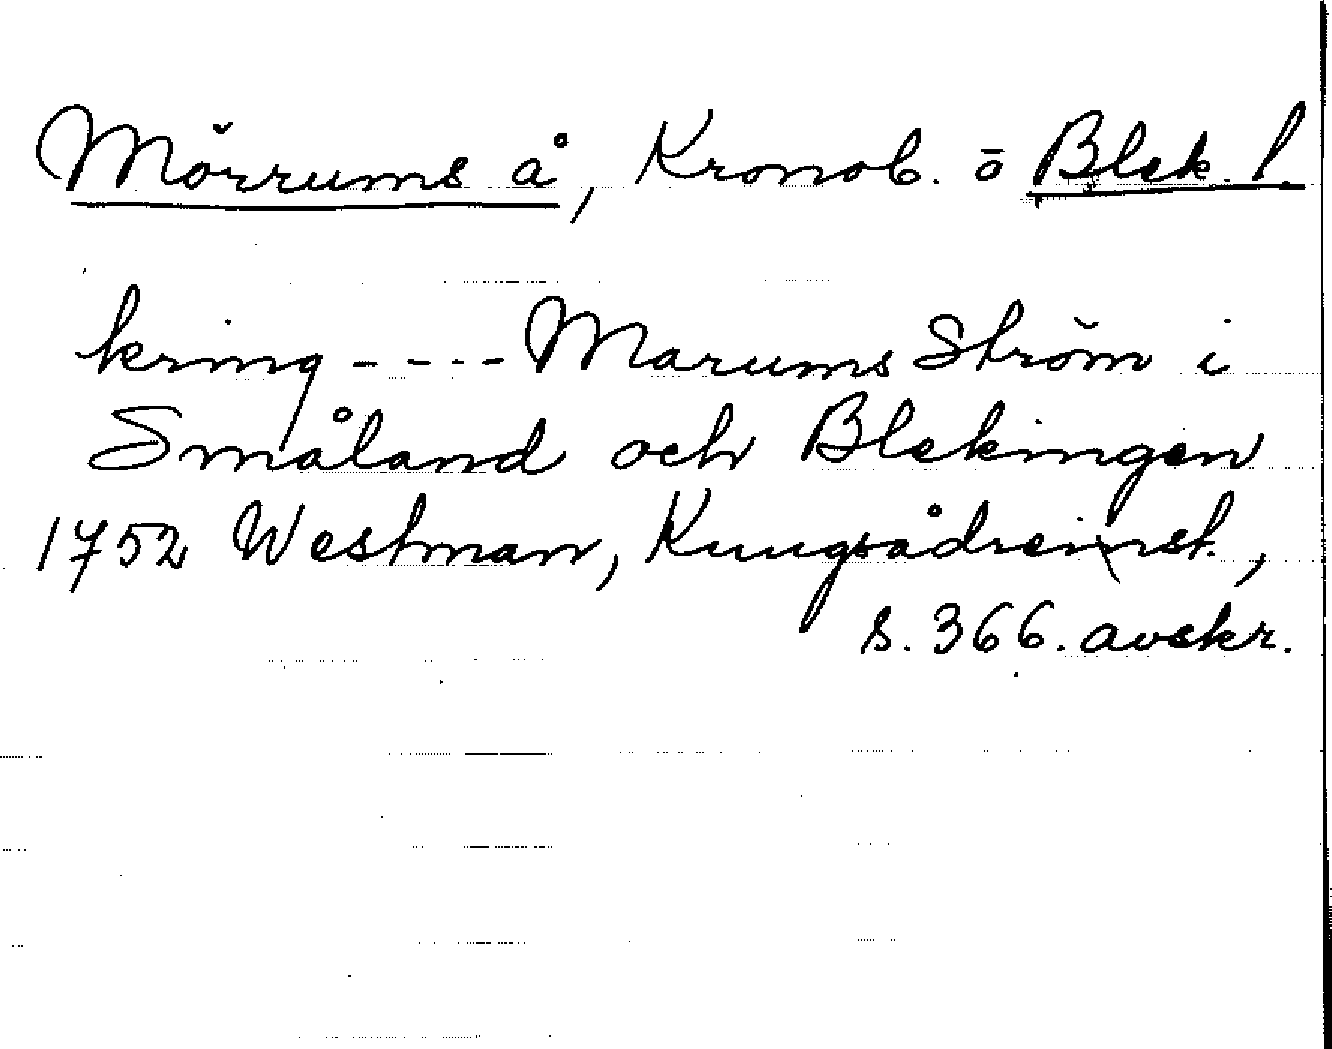 Mörrums å, Kronob. o Blek. l.
kring - - - - Marums Ström i
Småland och Blekingen
1752 Westman, Kungsådreinst.,
s. 366. avskr.